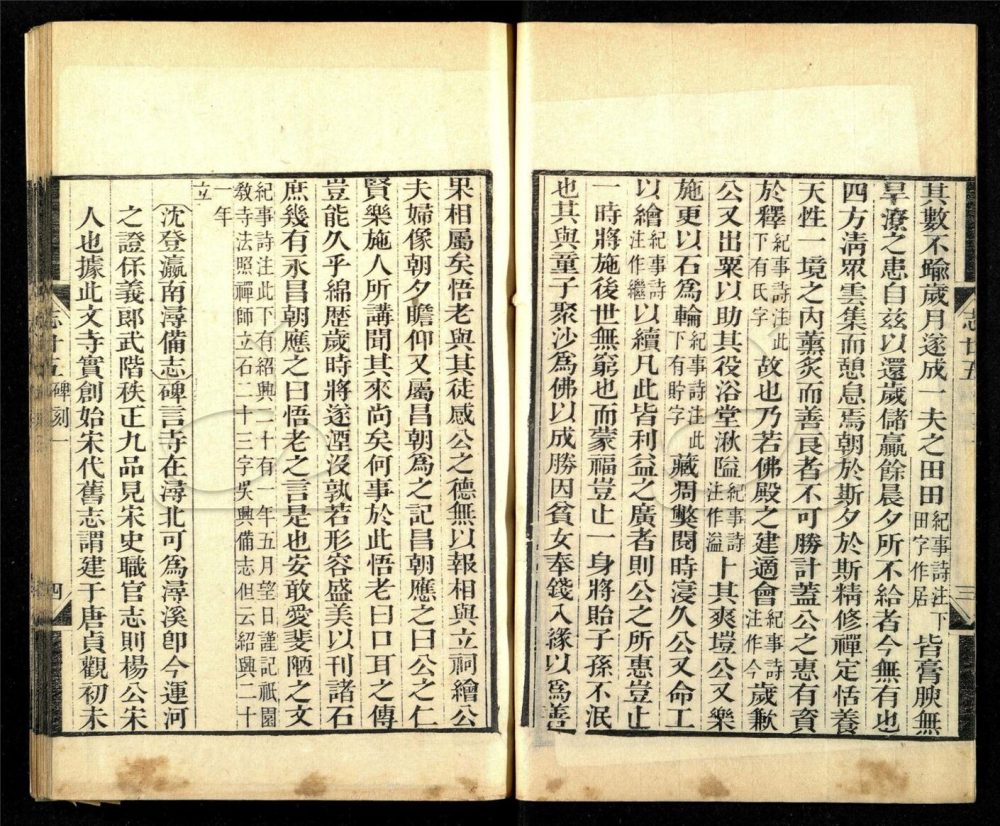 其數不踰歲月遂成一夫之田田紀事詩注下田字作居皆膏腴無
旱潦之患自兹以還歲儲贏餘晨夕所不給者今無有也
四方淸眾雲集而憩息焉朝於斯夕於斯精修禪定恬養
天性一境之內薰炙而善良者不可勝計蓋公之惠有資
於釋紀事詩注此下有氏字故也乃若佛殿之建適會紀事詩注作今歲歉
公又出粟以助其役浴堂湫隘紀事詩注作溢卜其爽塏公又樂
施更以石爲輪紀事詩注此下有貯字藏凋獘閱時寖久公又命工
以繪紀事詩注作繼以續凡此皆利益之廣者則公之所惠豈止
一時將施後世無窮也而蒙福豈止一身將貽子孫不泯
也其與童子聚沙爲佛以成勝因貧女奉錢入緣以爲善
志廿五
三
果相屬矣悟老與其徒感公之德無以報相與立祠繪公
夫婦像朝夕瞻仰又屬昌朝爲之記昌朝應之曰公之仁
賢樂施人所講聞其來尚矣何事於此悟老曰口耳之傳
豈能久乎綿歷歲時將遂湮沒孰若形容盛美以刊諸石
庶幾有永昌朝應之曰悟老之言是也安敢愛斐陋之文
紀事詩注此下有紹興二十有一年五月望日謹記祇園
教寺法照禪師立石二十三字吳興備志但云紹興二十
一年
立
沈登瀛南潯備志碑言寺在潯北可爲潯溪卽今運河
之證保義郎武階秩正九品見宋史職官志則楊公宋
人也據此文寺實創始宋代舊志謂建于唐貞觀初未
志廿五 碑刻一
四